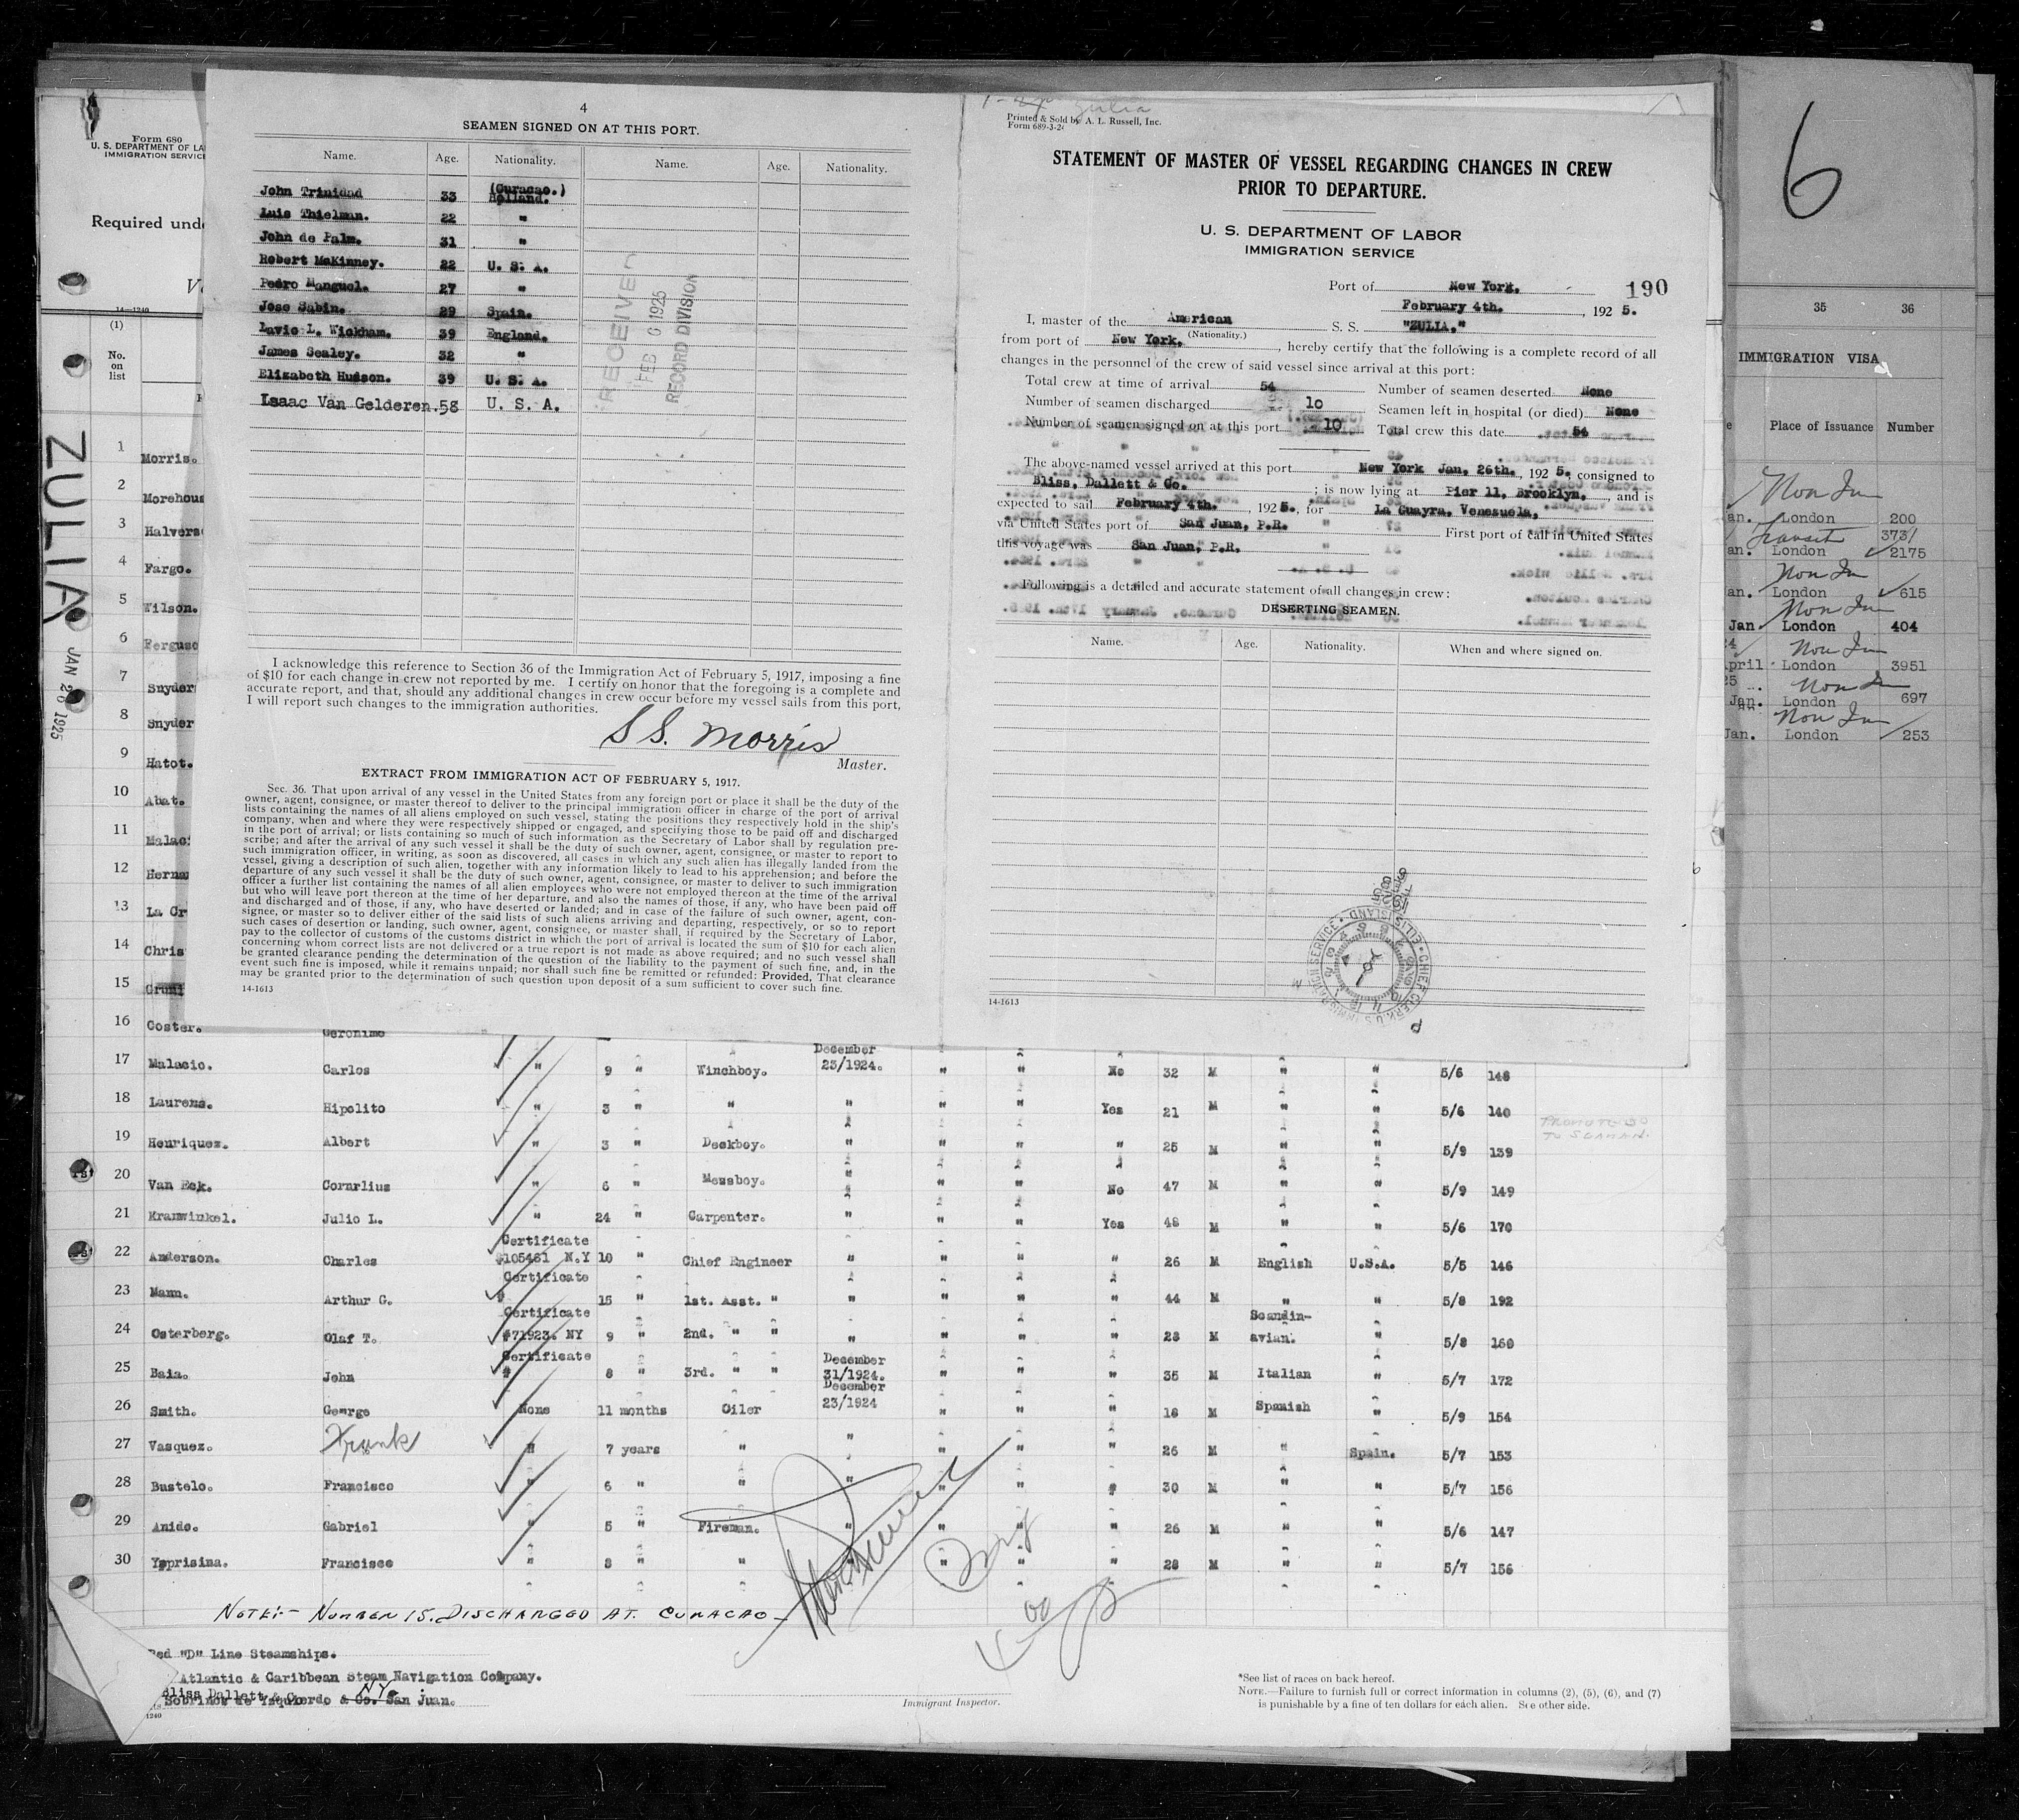 4
SEAMEN SIGNED ON AT THIS PORT.
Name. Age. Nationality. Name. Age. Nationality.
John Trinidad 33 (Curacao.) Holland.
Luis Thielman. 22 "
John de Palm. 31 "
Robert MaKinney. 22 U. S. A.
Pedro Manguol. 27 "
Jose Sabin. 29 Spain.
Lavic L. Wickham. 39 England.
James Sealey. 32 "
Elizabeth Hudson. 39 U. S. A.
Isaac Van Gelderen. 58 U. S. A.
RECEIVED
FEB 6 1925
RECORD DIVISION
I acknowledge this reference to Section 36 of the Immigration Act of February 5, 1917, imposing a fine
of $10 for each change in crew not reported by me. I certify on honor that the foregoing is a complete and
accurate report, and that, should any additional changes in crew occur before my vessel sails from this port,
I will report such changes to the immigration authorities.
S S. Morris
Master.
EXTRACT FROM IMMIGRATION ACT OF FEBRUARY 5, 1917.
Sec. 36. That upon arrival of any vessel in the United States from any foreign port or place it shall be the duty of the
owner, agent, consignee, or master thereof to deliver to the principal immigration officer in charge of the port of arrival
lists containing the names of all aliens employed on such vessel, stating the positions they respectively hold in the ship's
company, when and where they were respectively shipped or engaged, and specifying those to be paid off and discharged
in the port of arrival; or lists containing so much of such information as the Secretary of Labor shall by regulation pre-
scribe; and after the arrival of any such vessel it shall be the duty of such owner, agent, consignee, or master to report to
such immigration officer, in writing, as soon as discovered, all cases in which any such alien has illegally landed from the
vessel, giving a description of such alien, together with any information likely to lead to his apprehension; and before the
departure of any such vessel it shall be the duty of such owner, agent, consignee, or master to deliver to such immigration
officer a further list containing the names of all alien employees who were not employed thereon at the time of the arrival
but who will leave port thereon at the time of her departure, and also the names of those, if any, who have been paid off
and discharged and of those, if any, who have deserted or landed; and in case of the failure of such owner, agent, con-
signee, or master so to deliver either of the said lists of such aliens arriving and departing, respectively, or so to report
such cases of desertion or landing, such owner, agent, consignee, or master shall, if required by the Secretary of Labor,
pay to the collector of customs of the customs district in which the port of arrival is located the sum of $10 for each alien
concerning whom correct lists are not delivered or a true report is not made as above required; and no such vessel shall
be granted clearance pending the determination of the question of the liability to the payment of such fine, and, in the
event such fine is imposed, while it remains unpaid; nor shall such fine be remitted or refunded: Provided, That clearance
may be granted prior to the determination of such question upon deposit of a sum sufficient to cover such fine.
14-1613
Zulia
Printed & Sold by A. L. Russell, Inc.
Form 689-3-24
STATEMENT OF MASTER OF VESSEL REGARDING CHANGES IN CREW
PRIOR TO DEPARTURE.
U. S. DEPARTMENT OF LABOR
IMMIGRATION SERVICE
190
Port of New York.
February 4th. , 192 5.
I, master of the American S. S. "ZULIA."
(Nationality.)
from port of New York. , hereby certify that the following is a complete record of all
changes in the personnel of the crew of said vessel since arrival at this port:
Total crew at time of arrival 54 Number of seamen deserted None
Number of seamen discharged 10 Seamen left in hospital (or died) None
Number of seamen signed on at this port 10 Total crew this date 54
The above-named vessel arrived at this port New York Jan. 26th. , 192 5. consigned to
Bliss, Dallett & Co. ; is now lying at Pier 11, Brooklyn. , and is
expected to sail February 4th. , 192 5. for La Guayra. Venezuela,
via United States port of San Juan, P.R. First port of call in United States
this voyage was San Juan, P.R.
Following is a detailed and accurate statement of all changes in crew:
DESERTING SEAMEN.
Name. Age. Nationality. When and where signed on.
14-1613
CHIEF CLERK, U.S. IMMIGRATION SERVICE ELLIS ISLAND
Form 680
U. S. DEPARTMENT OF LA
IMMIGRATION SERVICE
Required unde
14-1240
(1)
No.
on
list
ZULIA
JAN 26 1925
1 Morris.
2 Morehous
3 Halvers
4 Fargo.
5 Wilson.
6 Ferguso
7 Snyder
8 Snyder
9 Hatot.
10 Abat.
11 Malac
12 Herna
13 La Cr
14 Chris
15
16 Coster. Geronimo
17 Malacic. Carlos " 9 " Winchboy. December 23/1924. " " No 32 M " " 5/6 148
18 Laurens. Hipolito " 3 " " " " " Yes 21 M " " 5/6 140 PROMOTED TO SEAMAN.
19 Henriquez. Albert " 3 " Deckboy. " " " " 25 M " " 5/9 139
20 Van Eck. Cornrlius " 6 " Messboy. " " " No 47 M " " 5/9 149
21 Kranwinkel. Julio L. " 24 " Carpenter. " " " Yes 48 M " " 5/6 170
22 Anderson. Charles Certificate #105461 N.Y 10 " Chief Engineer " " " " 26 M English U.S.A. 5/5 146
23 Mann. Arthur G. Certificate # 15 " 1st. Asst. " " " " " 44 M " " 5/8 192
24 Osterberg. Olaf T. Certificate #71923. NY 9 " 2nd. " " " " " " 28 M Scandin-avian. " 5/8 160
25 Baia. John Certificate # 8 " 3rd. " " December 31/1924. " " " 35 M Italian " 5/7 172
26 Smith. George None 11 months Oiler December 23/1924 " " " 18 M Spanish " 5/9 154
27 Vasquez. Frank " 7 years " " " " " 26 M " Spain. 5/7 153
28 Bustelo. Francisco " 6 " " " " " " 30 M " " 5/7 156
29 Anido. Gabriel " 5 " Fireman. " " " " 26 M " " 5/6 147
30 Ysprisina. Francisco " 8 " " " " " " 28 M " " 5/7 156
NOTE:- NUMBER 15. DISCHARGED AT. CURACAO-
Red "D" Line Steamships.
Atlantic & Caribbean Steam Navigation Company.
Bliss Dallett & Co. NY.
Sobrinos de Yzquierdo & Co. San Juan.
1240
Immigrant Inspector.
*See list of races on back hereof.
NOTE.—Failure to furnish full or correct information in columns (2), (5), (6), and (7)
is punishable by a fine of ten dollars for each alien. See other side.
6
35 36
IMMIGRATION VISA
Place of Issuance Number
Non Im
an. London 200
Transit 373/
an. London 2175
Non Im
an. London 615
Non Im
Jan London 404
Non Im
pril London 3951
Non Im
Jan. London 697
Non Im
Jan. London 253